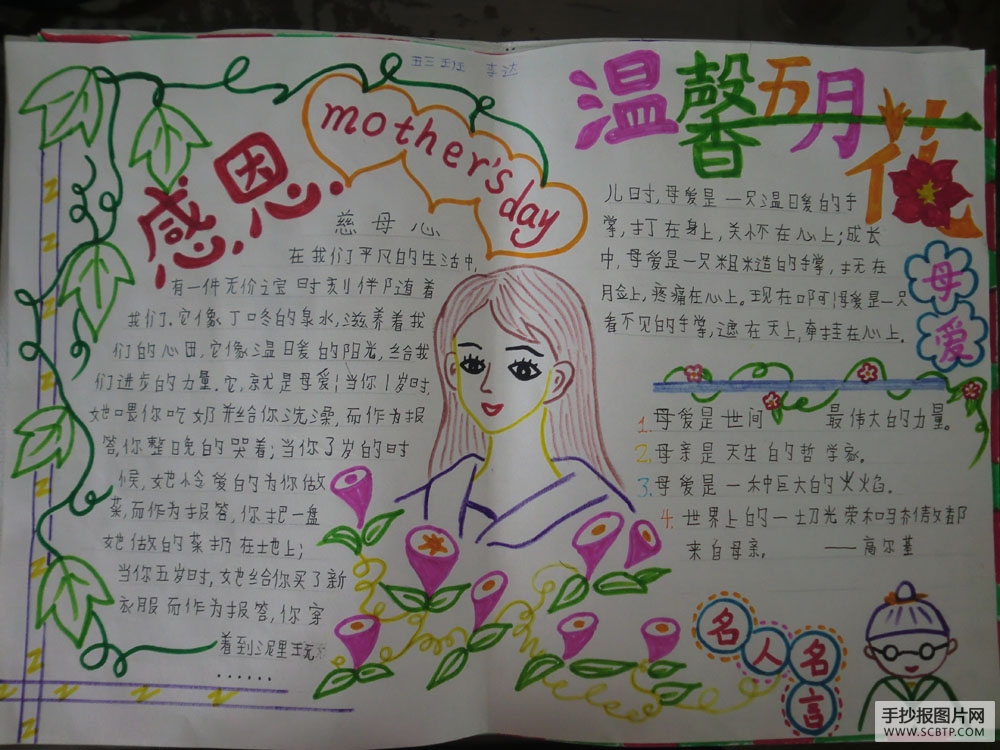 李达
感恩
mother's
day
慈母心
在我们平凡的生活中,
有一件无价之宝时刻伴随着
我们.它像丁咚的泉水,滋养着我
们的心田,它像温暖的阳光,给我
们进步的力量.它,就是母爱!当你1岁时,
她喂你吃奶并给你洗澡,而作为报
答,你整晚的哭着;当你3岁的时
候,她怜爱的为你做
菜,而作为报答,你把一盘
她做的菜扔在地上;
当你五岁时,她给你买了新
衣服而作为报答,你穿
着到泥里玩
......
温馨五月花
儿时,母爱是一只温暖的手
掌,打在身上,关怀在心上;成长
中,母爱是一只粗糙的手掌,括在
月佥上,疼痛在心上。现在叩可,母爱是一只
看不见的手掌,遮在天上,牵挂在心上。
母爱
1.母爱是世间 最伟大的力量。
2.母亲是天生的哲学家。
3.母爱是一种巨大的火焰。
4.世界上的一切光荣和骄傲都
来自母亲。 ——高尔基
名人名言
手抄报图片网
WWW.SCBTP.COM